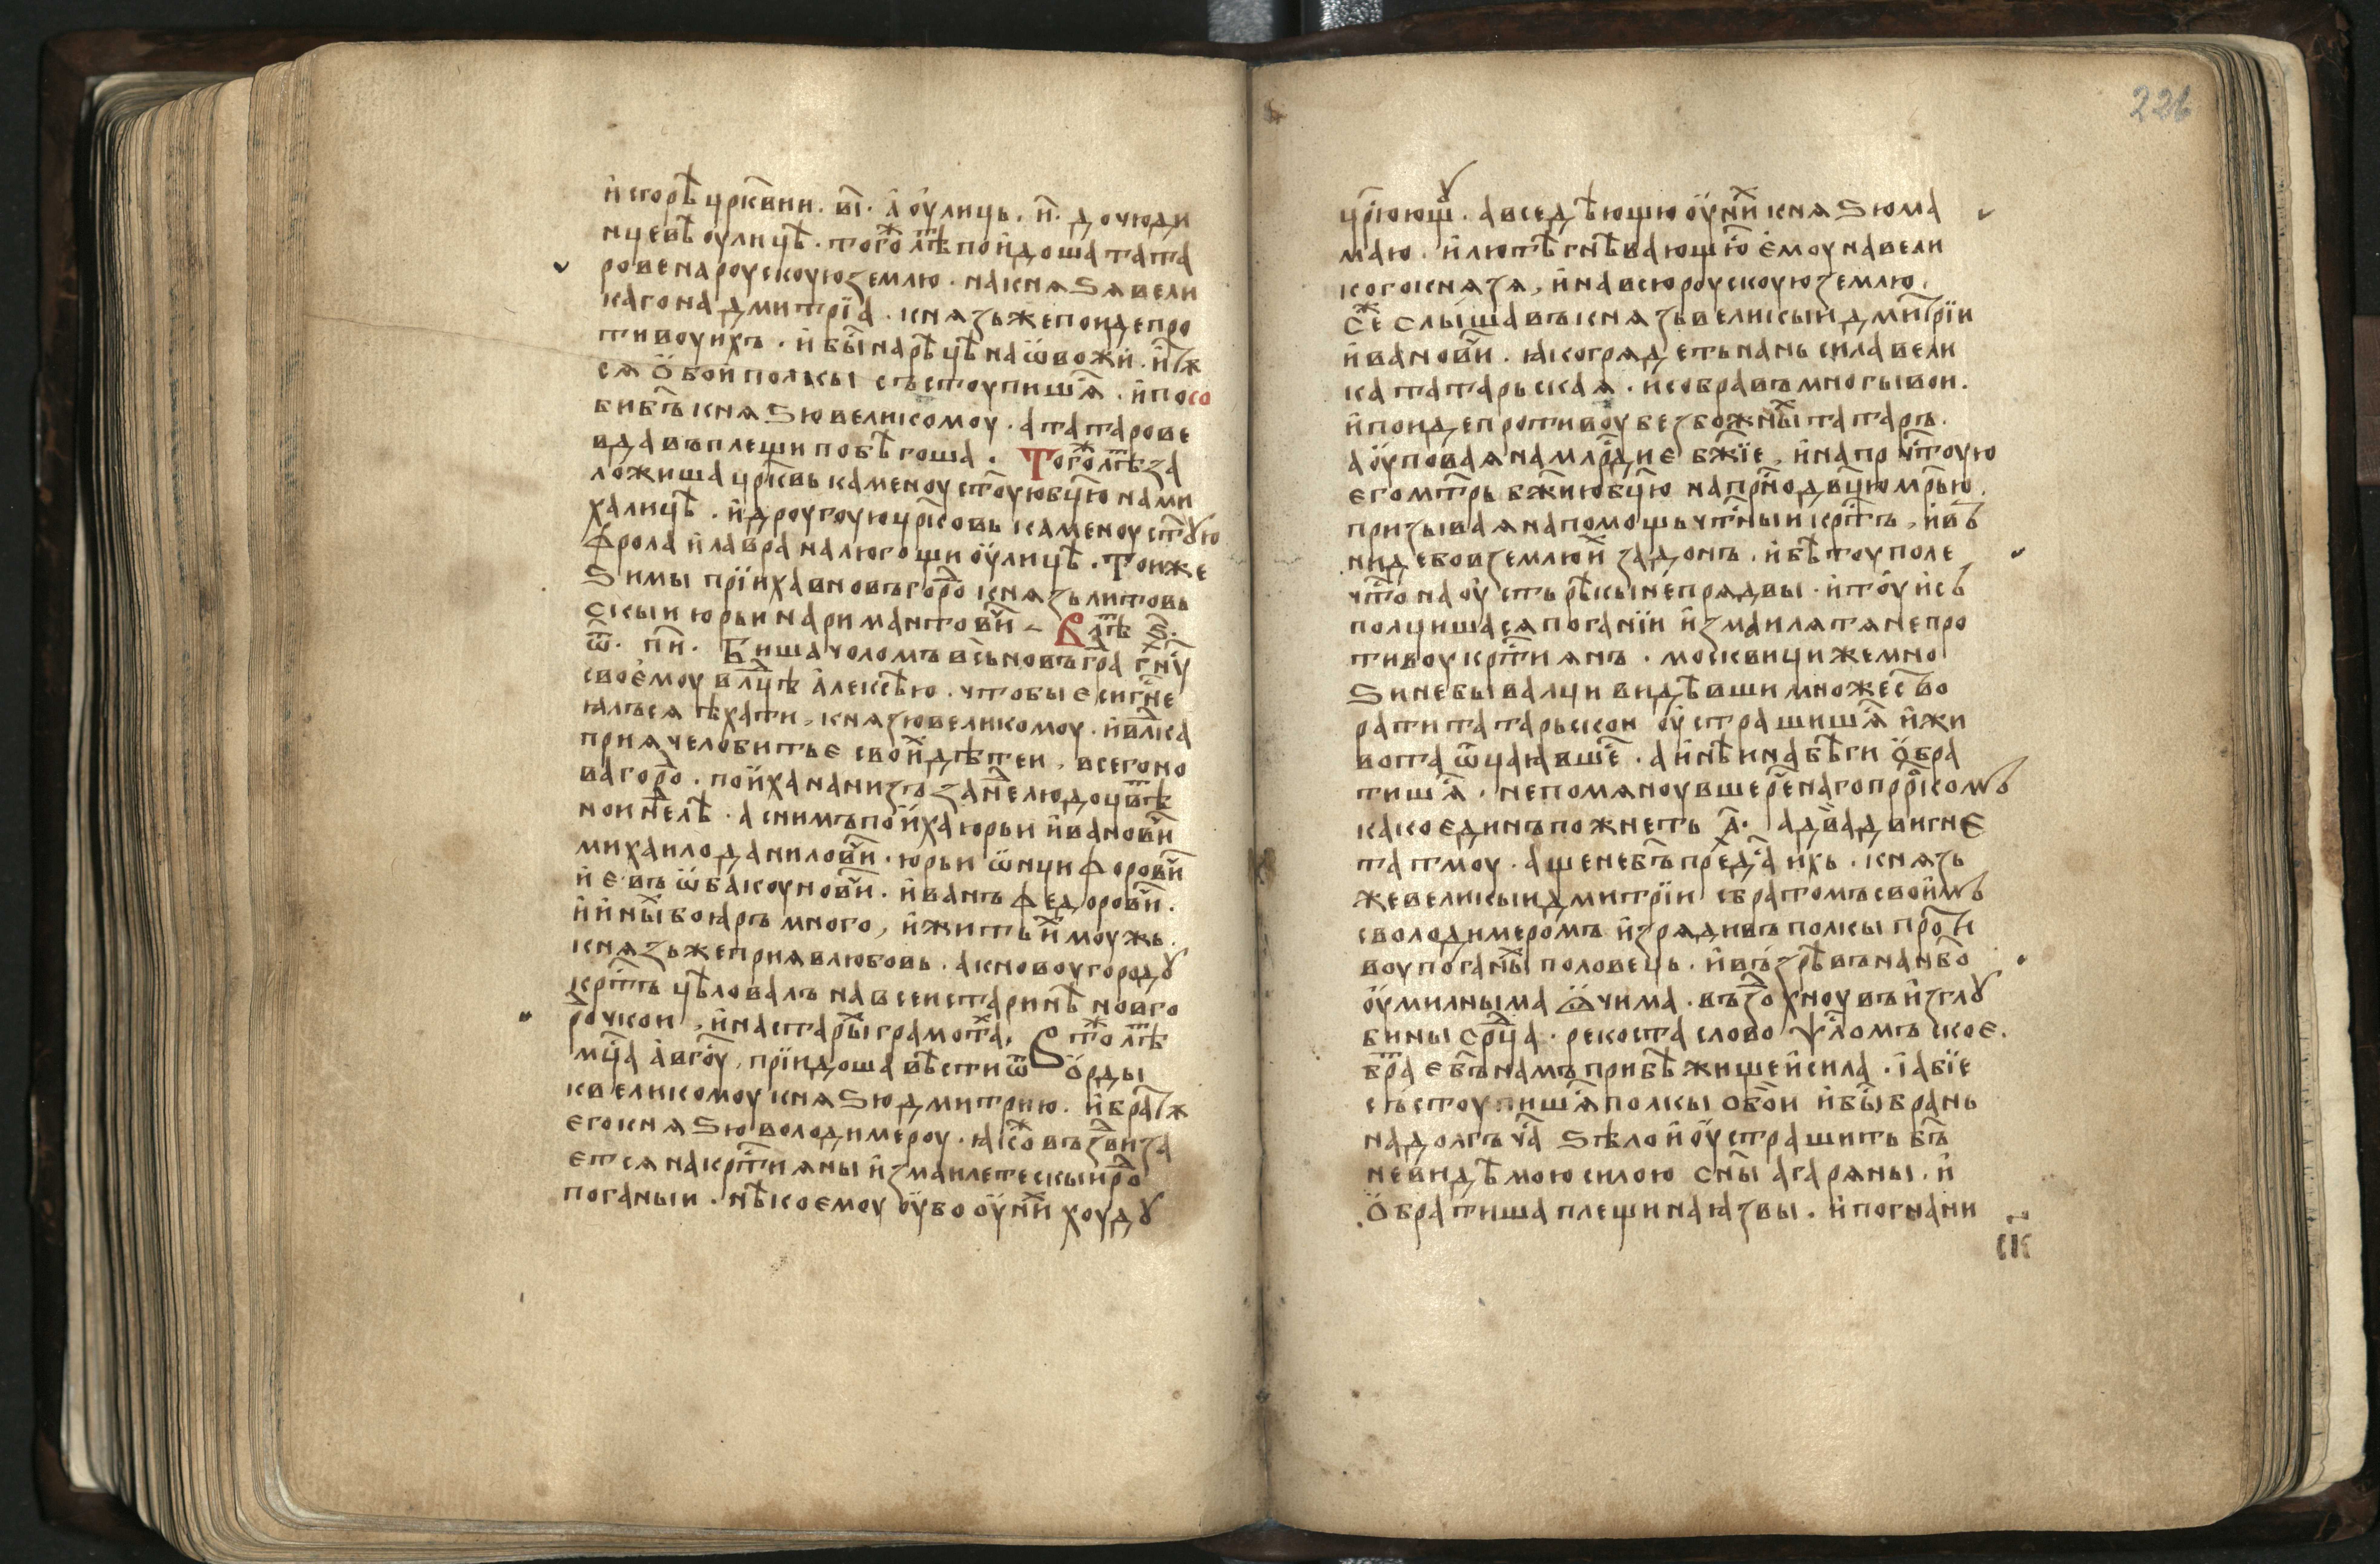 и҆ сгорѣ црк҃вии · в҃і · а҆ оу҆лиць · н҃ · дочюди
нцевѣ оулицѣ · тог̑ⷤо лⷮѣ пои҆доша тата
рове на роускоую землю · на кнѧѕѧ вели
каго на дмитрїа · кнѧзь же поиде про
тивоу ихъ · и҆ бы̑ на рѣцѣ на ѡ҆вожи · и҆ тⷤ
сѧ ѻ҆бои полкы състоупишⷭ҇ѧ · и҆ посо
би бг҃ъ кнѧѕю великомоу · а татарове
вдавъ плещи побѣгоша · Тог̑ⷤо лⷮѣ за
ложиша црк҃вь каменоу ст҃оую бц҃ю на ми
халицѣ · и҆ дроугоую црк҃овь каменоу ст҃ꙋю
Фрола и҆ лавра на люгощи оу҆лицѣ · Тоиже
ѕимы прїиха в новъгороⷣ кнѧзь литовь
скыи юрьи наримантовиⷱ ~ В лⷮѣ ѕ҃ ·
ѿ · пи҃ · Биша чоломъ всь новъграⷣ гн҃ꙋ
своє҆моу влⷣцѣ а҆лексѣю · чтобы єси гн҃е
ꙗлъсѧ ѣхати, кнѧзю великомоу · и҆ влⷣка
приѧ челобитьє своиⷯ дѣтеи, всего но
вагороⷣ · пои҆ха на низъ за нⷣелю до цвⷮѣ
нои нⷣелѣ · а с нимъ пои҆ха юрьи и҆вановиⷱ
михаило даниловиⷱ · юрьи ѡ҆нцифоровиⷱ
и҆ євъ ѡ҆бакоуновиⷱ · и҆ванъ федоровиⷱ ·
и҆ и҆ныⷯ боꙗръ много, и҆ житьиⷯ моужь ·
кнѧзь же приѧ в любовь · а к новоугородꙋ
крⷭ҇тъ цѣловалъ на всеи старинѣ новго
роⷣчкои, и҆ на старыⷯ грамотаⷯ, Ѕ тоⷤ лⷮѣ
мцⷭ҇а а҆вгоу҆, прїидоша вѣсти ѿ ѻ҆рды
к великомоу кнѧѕю дмитрию · и҆ браⷮ ж
єго кнѧѕю володимероу · ꙗкоⷤ въздвиза
єтсѧ на крⷭ҇тиѧны и҆змаилетескыи роⷣ
поганыи · нѣкоємоу оу҆бо оу҆ ниⷯ хоудꙋ
црⷭ҇юющꙋ · а все дѣющю оу҆ ниⷯ кнѧѕю ма
маю · и҆ лютѣ гнѣвающюⷭ҇ є҆моу на вели
кого кнѧзѧ, и҆ на всю роускоую землю ·
Сеⷤ слы́шавъ кнѧзь великыи дмитрїи
и҆вановиⷱ · ꙗко грѧдеть на нь сила вели
ка татарьскаѧ · и҆ собравъ многы вои ·
и҆ поиде противоу безбожныⷯ татаръ ·
а оу҆поваѧ на млрⷭ҇диє бж҃їе, и҆ на прчⷭ҇тоую
єго мт҃рь бж҃ию бц҃ю на прⷭ҇нодв҃цю мр҃ью ·
призываѧ на помощь чтⷭ҇ныи крⷭ҇тъ, и҆ въ
ниде бо в землю иⷯ за донъ · и҆ бѣ тоу поле
чⷭ҇то на оу҆сть рѣкы непрѧдвы · и҆ тоу и҆съ
полцишасѧ поганїи и҆змаилтѧтѧне про
тивоу крⷭ҇тиѧнъ · москвици же мно
ѕи не бывалци видѣвши множество
рати татарьскои оу҆страшишⷭ҇ѧ и҆ жи
вота ѿчаꙗвшеⷭ҇ · а и҆нѣи на бѣги ѻ҆бра
тишⷭ҇ѧ · не помѧноувше реⷱнаго прⷪ҇ркомъ
како єдинъ пожнеть а҃ · а два двигнє
та тмоу · аще не бг҃ъ предасⷭ҇ть ихъ · кнѧзь
же великыи дмитрїи с братомъ своимъ
с володимеромъ и҆зрѧдивъ полкы проти
воу поганыⷯ половець · и҆ възрѣвъ на нб҃о
оу҆милныма ѻ҆чима · въздохноувъ и҆з глꙋ
бины срⷣца · рекоста слово ѱал҃омъскоє ·
браⷮа б҃ъ намъ прибѣжище и҆ сила · і҆ абїе
състоупишⷭ҇ѧ полкы обои и҆ бы̑ брань
на долгъ чаⷭ҇ ѕѣло и҆ оу҆страшить бг҃ъ
невидѣмою силою сн҃ы агарѧны · и҆
ѻ҆братиша плещи на ꙗзвы · и҆ погнани
226
ск